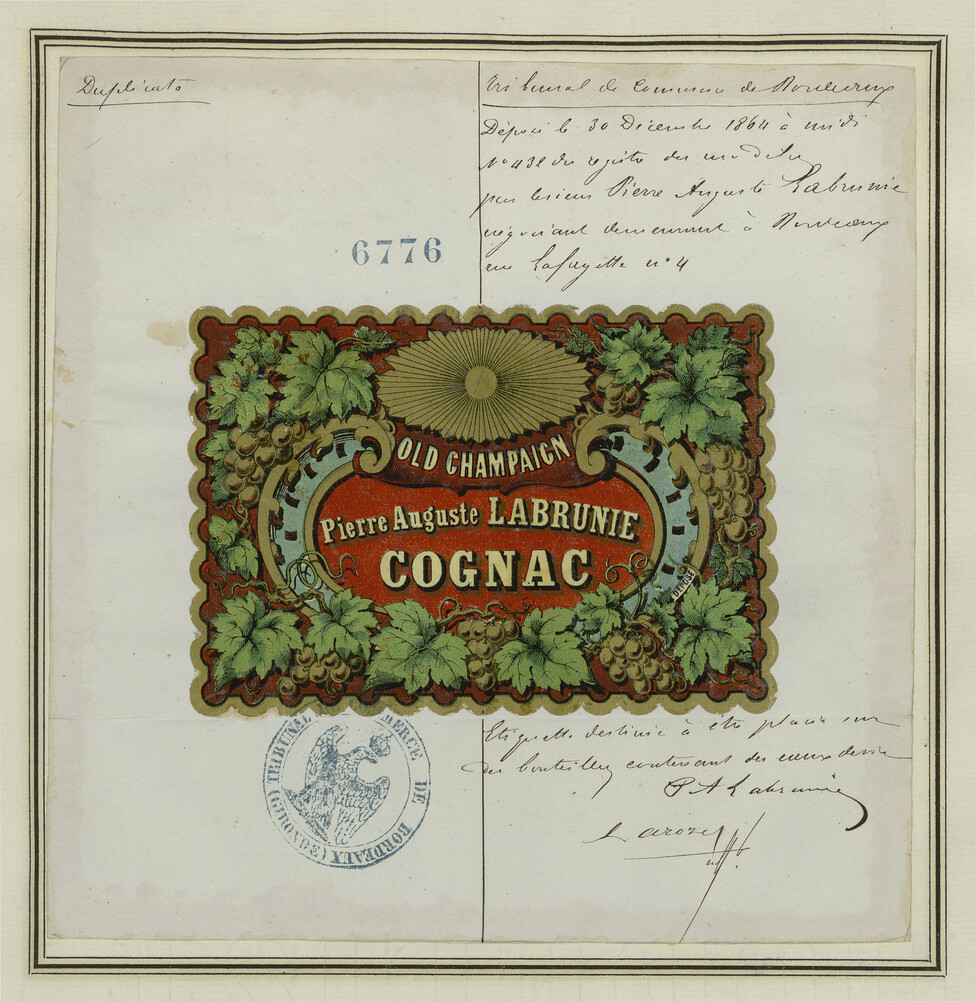 Duplicata
Tribunal de Commerce de Bordeaux
Déposé le 30 Décembre 1864 à midi
N° 432 du registre des modèles
par le sieur Pierre Auguste Labrunie
négociant demeurant à Bordeaux
rue Lafayette n° 4
6776
OLD CHAMPAIGN
Pierre Auguste LABRUNIE
COGNAC
DÉPOSÉ
Etiquette destinée à être placée sur
des bouteilles contenant des eaux de vie
P A Labrunie
Laroze
TRIBUNAL COMMERCE DE BORDEAUX (GIRONDE)